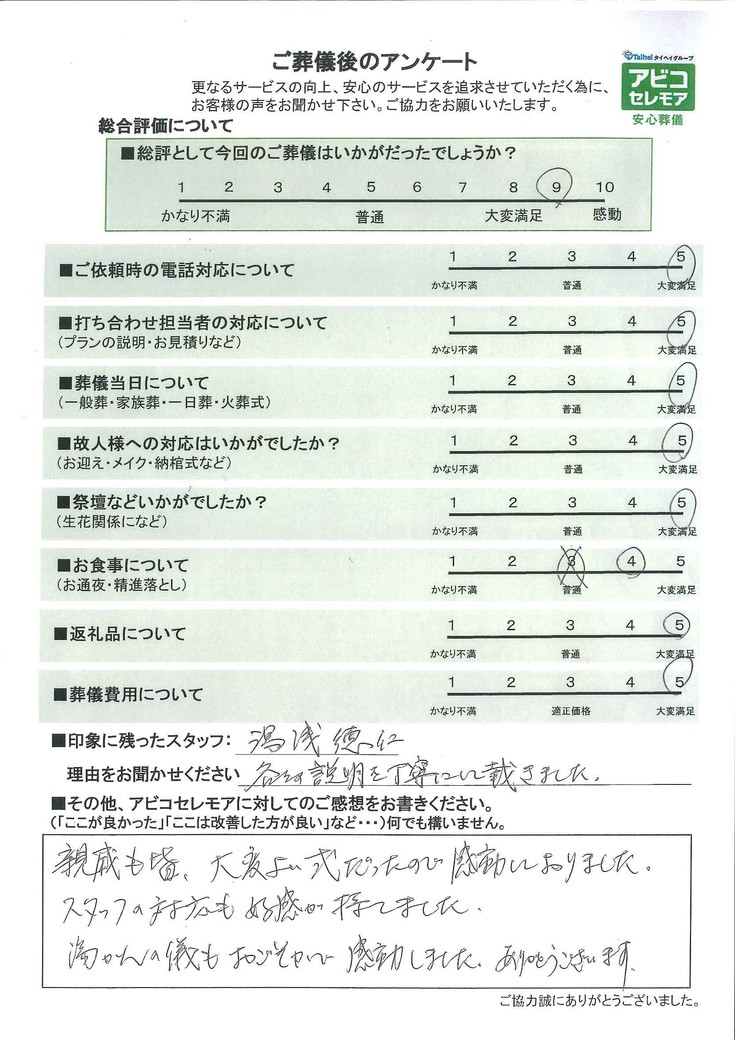 ご葬儀後のアンケート
Taihei タイヘイグループ
アビコ
セレモア
安心葬儀
更なるサービスの向上、安心のサービスを追求させていただく為に、
お客様の声をお聞かせ下さい。ご協力をお願いいたします。
総合評価について
■総評として今回のご葬儀はいかがだったでしょうか？
1 2 3 4 5 6 7 8 9 10
かなり不満 普通 大変満足 感動
■ご依頼時の電話対応について
1 2 3 4 5
かなり不満 普通 大変満足
■打ち合わせ担当者の対応について
(プランの説明・お見積りなど)
1 2 3 4 5
かなり不満 普通 大変満足
■葬儀当日について
(一般葬・家族葬・一日葬・火葬式)
1 2 3 4 5
かなり不満 普通 大変満足
■故人様への対応はいかがでしたか？
(お迎え・メイク・納棺式など)
1 2 3 4 5
かなり不満 普通 大変満足
■祭壇などいかがでしたか？
(生花関係になど)
1 2 3 4 5
かなり不満 普通 大変満足
■お食事について
(お通夜・精進落とし)
1 2 3 4 5
かなり不満 普通 大変満足
■返礼品について
1 2 3 4 5
かなり不満 普通 大変満足
■葬儀費用について
1 2 3 4 5
かなり不満 適正価格 大変満足
■印象に残ったスタッフ： 湯浅 徳仁
理由をお聞かせください 説明を丁寧にして戴きました。
■その他、アビコセレモアに対してのご感想をお書きください。
(「ここが良かった」「ここは改善した方が良い」など・・・)何でも構いません。
親戚も皆、大変よい式だったので感動しておりました。
スタッフの対応も好感が持てました。
湯かんの儀もおごそかで感動しました。ありがとうございます。
ご協力誠にありがとうございました。